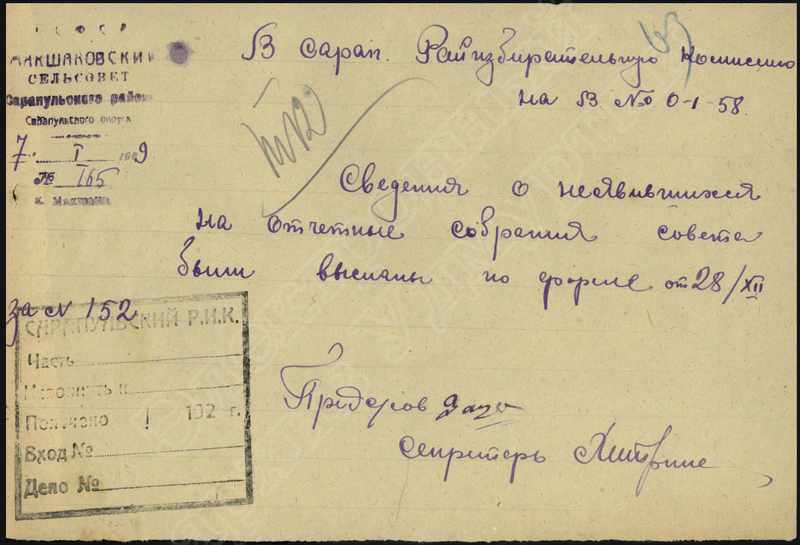 Р С Ф С Р
МАКШАКОВСКИЙ
СЕЛЬСОВЕТ
Сарапульского района
Сарапульского округа
7 I 1929
№ 165
с. Макшаки
В Сарап. Райизбирательную Комиссию
на В № 0-1-58.
Сведения о неявившихся
на отчетные собрания совета
были высланы по форме от 28/XII
за N 152
САРАПУЛЬСКИЙ Р.И.К.
Часть
Исполнить к
Получено 192 г.
Вход №
Дело №
Секретарь